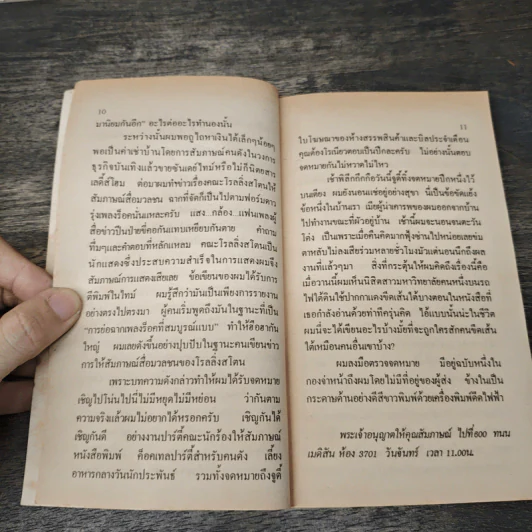 10
มานิยมกันอีก" อะไรต่ออะไรทำนองนั้น
ระหว่างนั้นผมพอถูไถหาเงินได้เล็กๆน้อยๆ
พอเป็นค่าเช่าบ้านโดยการสัมภาษณ์คนดังในวงการ
ธุรกิจบันเทิงแล้วขายซันเดย์ไทม์หรือไม่ก็นิตยสาร
เลดี้ส์โฮม ต่อมาผมทำข่าวเรื่องคณะโรลลิ่งสโตนให้
สัมภาษณ์สื่อมวลชน จากที่จัดก็เป็นไปตามฟอร์มดาว
รุ่งเพลงร็อคนั่นแหละครับ แสง กล้อง แฟนเพลงผู้
สื่อข่าวป็นป่ายขี่คอกันแทบเหยียบกันตาย คำถาม
ทึ่มๆและคำตอบที่หลักแหลม คณะโรลลิ่งสโตนเป็น
นักแสดงซึ่งประสบความสำเร็จในการแสดงจึง
สัมภาษณ์การแสดงเสียเลย ข้อเขียนของผมได้รับการ
ตีพิมพ์ในไทม์ ผมรู้สึกว่ามันเป็นเพียงการรายงาน
อย่างตรงไปตรงมา ผู้คนเริ่มพูดถึงมันในฐานะที่เป็น
"การย่อจากเพลงร็อคที่สมบูรณ์แบบ" ทำให้ฮือฮากัน
ใหญ่ ผมเลยดังขึ้นอย่างปุบปับในฐานะคนเขียนข่าว
การให้สัมภาษณ์สื่อมวลชนของโรลลิ่งสโตน
เพราะบทความดังกล่าวทำให้ผมได้รับจดหมาย
เชิญไปโน่นไปนี่ไม่มีหยุดไม่มีหย่อน ว่ากันตาม
ความจริงแล้วผมไม่อยากได้หรอกครับ เชิญกันได้
เชิญกันดี อย่างงานปาร์ตี้คณะนักร้องให้สัมภาษณ์
หนังสือพิมพ์ ค็อคเทลปาร์ตี้สำหรับคนดัง เลี้ยง
อาหารกลางวันนักประพันธ์ รวมทั้งจดหมายถึงตู้ดี้
11
ใบโฆษณาของห้างสรรพสินค้าและบิลประจำเดือน
คุณต้องโรเนียวตอบเป็นปึกละครับ ไม่อย่างนั้นตอบ
จดหมายกันไม่หวาดไม่ไหว
เช้าพิลึกกึกกือวันนี้ตู้ดี้ทิ้งจดหมายปึกหนึ่งไว้
บนเตียง ผมยังนอนแช่อยู่อย่างสุขา นี่เป็นข้อขัดแย้ง
ข้อหนึ่งในบ้านเรา เมื่อผู้นำครอบครัวของผมออกจากบ้าน
ไปทำงานขณะที่ผัวอยู่บ้าน เช้านี้ผมจะนอนจนตะวัน
โด่ง เป็นเพราะเมื่อคืนคิดมากฟุ้งซ่านไปหน่อยเลยข่ม
ตาหลับไม่ลงเสียร่วมหลายชั่วโมงมัวแต่นอนนึกถึงผล
งานที่แล้วๆมา สิ่งที่กระตุ้นให้ผมคิดถึงเรื่องนี้คือ
เมื่อวานนี้ผมเห็นนิสิตสาวมหาวิทยาลัยคนหนึ่งบนรถ
ไฟใต้ดินใช้ปากกาแดงขีดเส้นใต้บางตอนในหนังสือที่
เธอกำลังอ่านด้วยท่าทีครุ่นคิด ไอ้แบบนั้นน่ะในชีวิต
ผมนี่จะได้เขียนอะไรบ้างมั้ยที่จะถูกใครสักคนขีดเส้น
ใต้เหมือนคนอื่นเขาบ้าง?
ผมลงมือตรวจจดหมาย มีอยู่ฉบับหนึ่งใน
กองจ่าหน้าถึงผมโดยไม่มีที่อยู่ของผู้ส่ง ข้างในเป็น
กระดาษด้านอย่างดีสีขาวพิมพ์ด้วยเครื่องพิมพ์ดีดไฟฟ้า
พระเจ้าอนุญาตให้คุณสัมภาษณ์ ไปที่ 600 ถนน
เมดิสัน ห้อง 3701 วันจันทร์ เวลา 11.00น.